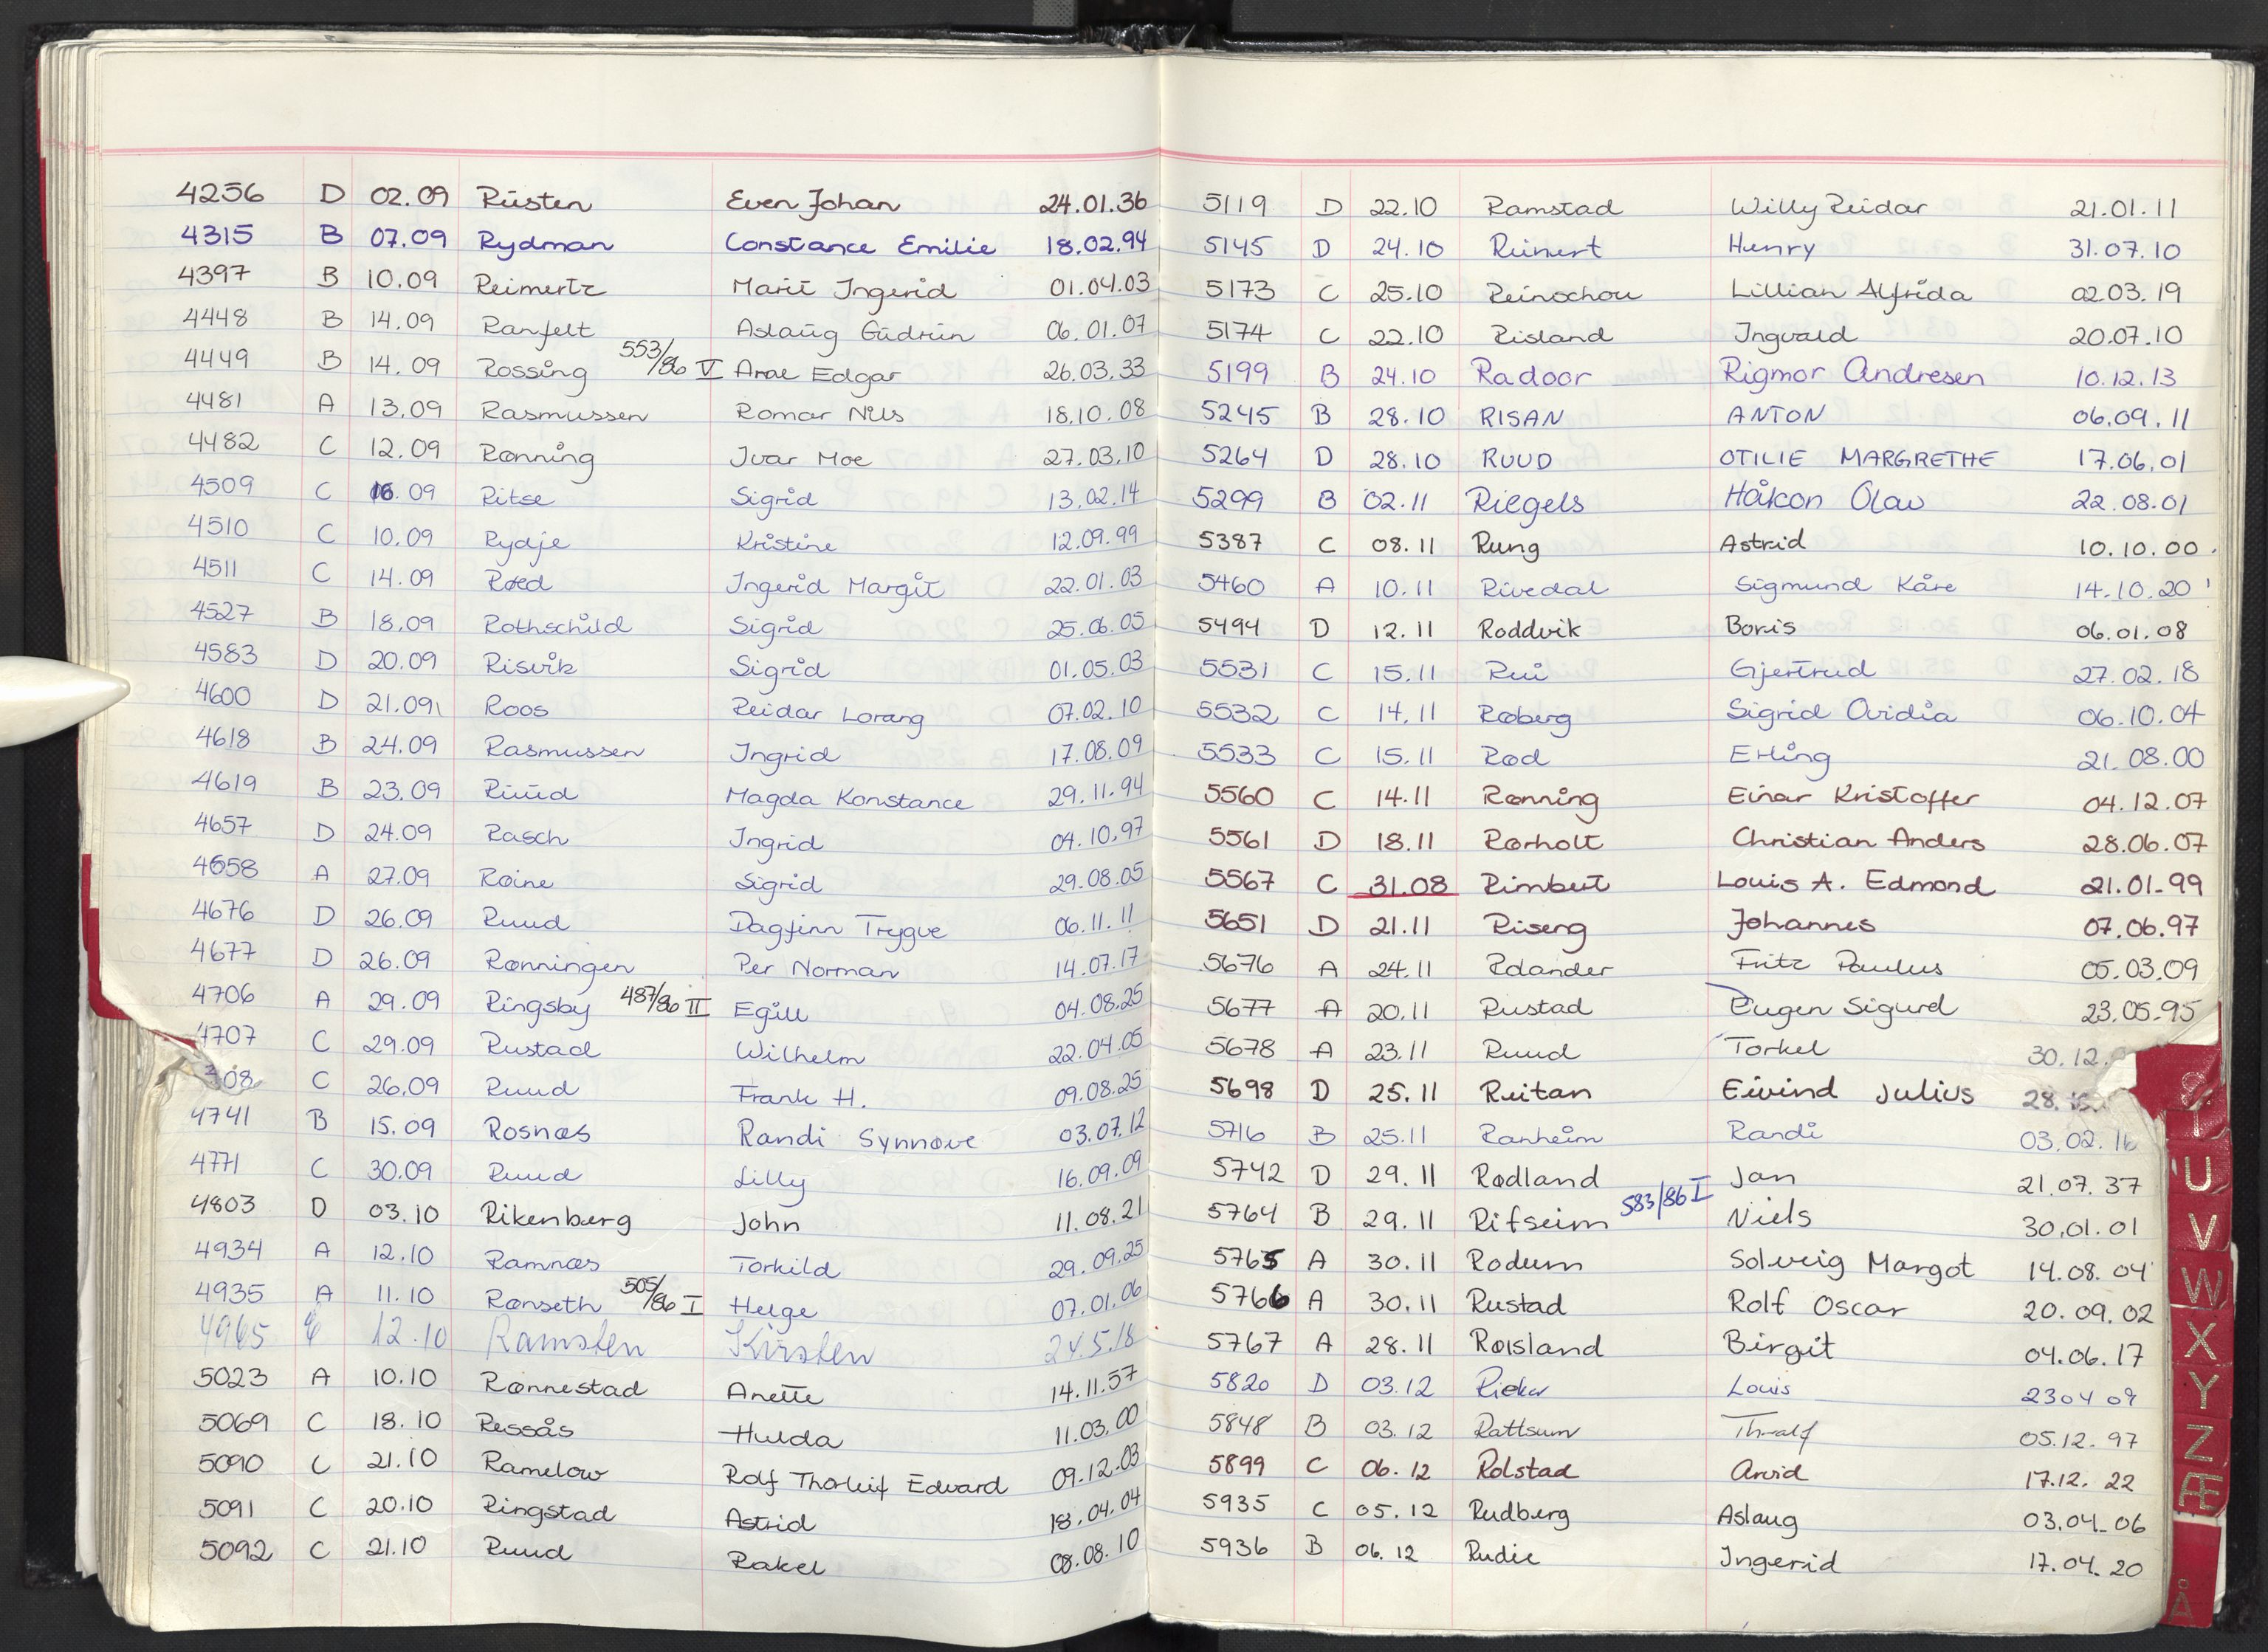 4256 D 02.09 Rusten Even Johan 24.01.36
4315 B 07.09 Rydman Constance Emilie 18.02.94
4397 B 10.09 Reimertz Marit Ingerid 01.04.03
4448 B 14.09 Ranfelt Aslaug Gudrun 06.01.07
4449 B 14.09 Rossing 553/86 V Arae Edgar 26.03.33
4481 A 13.09 Rasmussen Romar Nils 18.10.08
4482 C 12.09 Rønning Ivar Moe 27.03.10
4509 C 16.09 Ritse Sigrid 13.02.14
4510 C 10.09 Rydje Kristine 12.09.99
4511 C 14.09 Røed Ingerid Margit 22.01.03
4527 B 18.09 Rothschild Sigrid 25.06.05
4583 D 20.09 Risvik Sigrid 01.05.03
4600 D 21.09 Roos Reidar Lorang 07.02.10
4618 B 24.09 Rasmussen Ingrid 17.08.09
4619 B 23.09 Ruud Magda Konstance 29.11.94
4657 D 24.09 Rasch Ingrid 04.10.97
4658 A 27.09 Røine Sigrid 29.08.05
4676 D 26.09 Ruud Dagfinn Trygve 06.11.11
4677 D 26.09 Rønningen Per Norman 14.07.17
4706 A 29.09 Ringsby 487/86 II Egill 04.08.25
4707 C 29.09 Rustad Wilhelm 22.04.05
08 C 26.09 Ruud Frank H. 09.08.25
4741 B 15.09 Rosnæs Randi Synnøve 03.07.12
4771 C 30.09 Ruud Lilly 16.09.09
4803 D 03.10 Rikenberg John 11.08.21
4934 A 12.10 Ramnæs Torkild 29.09.25
4935 A 11.10 Rønseth 505/86 I Helge 07.01.06
4965 C 12.10 Ramsten Kirsten 24.5.18
5023 A 10.10 Rønnestad Anette 14.11.57
5069 C 18.10 Ressås Hulda 11.03.00
5090 C 21.10 Ramelow Rolf Thorleif Edvard 09.12.03
5091 C 20.10 Ringstad Astrid 18.04.04
5092 C 21.10 Ruud Rakel 08.08.10
5119 D 22.10 Ramstad Willy Reidar 21.01.11
5145 D 24.10 Reinert Henry 31.07.10
5173 C 25.10 Reinschou Lillian Alfrida 02.03.19
5174 C 22.10 Risland Ingvald 20.07.10
5199 B 24.10 Radoor Rigmor Andresen 10.12.13
5245 B 28.10 RISAN ANTON 06.09.11
5264 D 28.10 RUUD OTILIE MARGRETHE 17.06.01
5299 B 02.11 Riegels Håkon Olav 22.08.01
5387 C 08.11 Rung Astrid 10.10.00
5460 A 10.11 Rivedal Sigmund Kåre 14.10.20
5494 D 12.11 Roddvik Boris 06.01.08
5531 C 15.11 Rui Gjertrud 27.02.18
5532 C 14.11 Røberg Sigrid Ovidia 06.10.04
5533 C 15.11 Rød Erling 21.08.00
5560 C 14.11 Rønning Einar Kristoffer 04.12.07
5561 D 18.11 Rørholt Christian Anders 28.06.07
5567 C 31.08 Rimbert Louis A. Edmond 21.01-99
5651 D 21.11 Riseng Johannes 07.06.97
5676 A 24.11 Rolander Fritz Paulus 05.03.09
5677 A 20.11 Rustad Eugen Sigurd 23.05-95
5678 A 23.11 Ruud Torkel 30.12.
5698 D 25.11 Reitan Eivind Julius 28.
5716 B 25.11 Ranheim Randi 03.02.16
5742 D 29.11 Rødland Jan 21.07.37
5764 B 29.11 Rifseim 583/86 I Niels 30.01.01
5765 A 30.11 Rodum Solveig Margot 14.08.04
5766 A 30.11 Rustad Rolf Oscar 20.09.02
5767 A 28.11 Røisland Birgit 04.06.17
5820 D 03.12 Rieker Louis 23 04 09
5848 B 03.12 Rattsum Thralf 05.12.97
5899 C 06.12 Rolstad Arvid 17.12.22
5935 C 05.12 Rudberg Aslaug 03.04-06
5936 B 06.12 Rudie Ingerid 17.04.20
U
V
W
X
Y
Z
Æ
Å